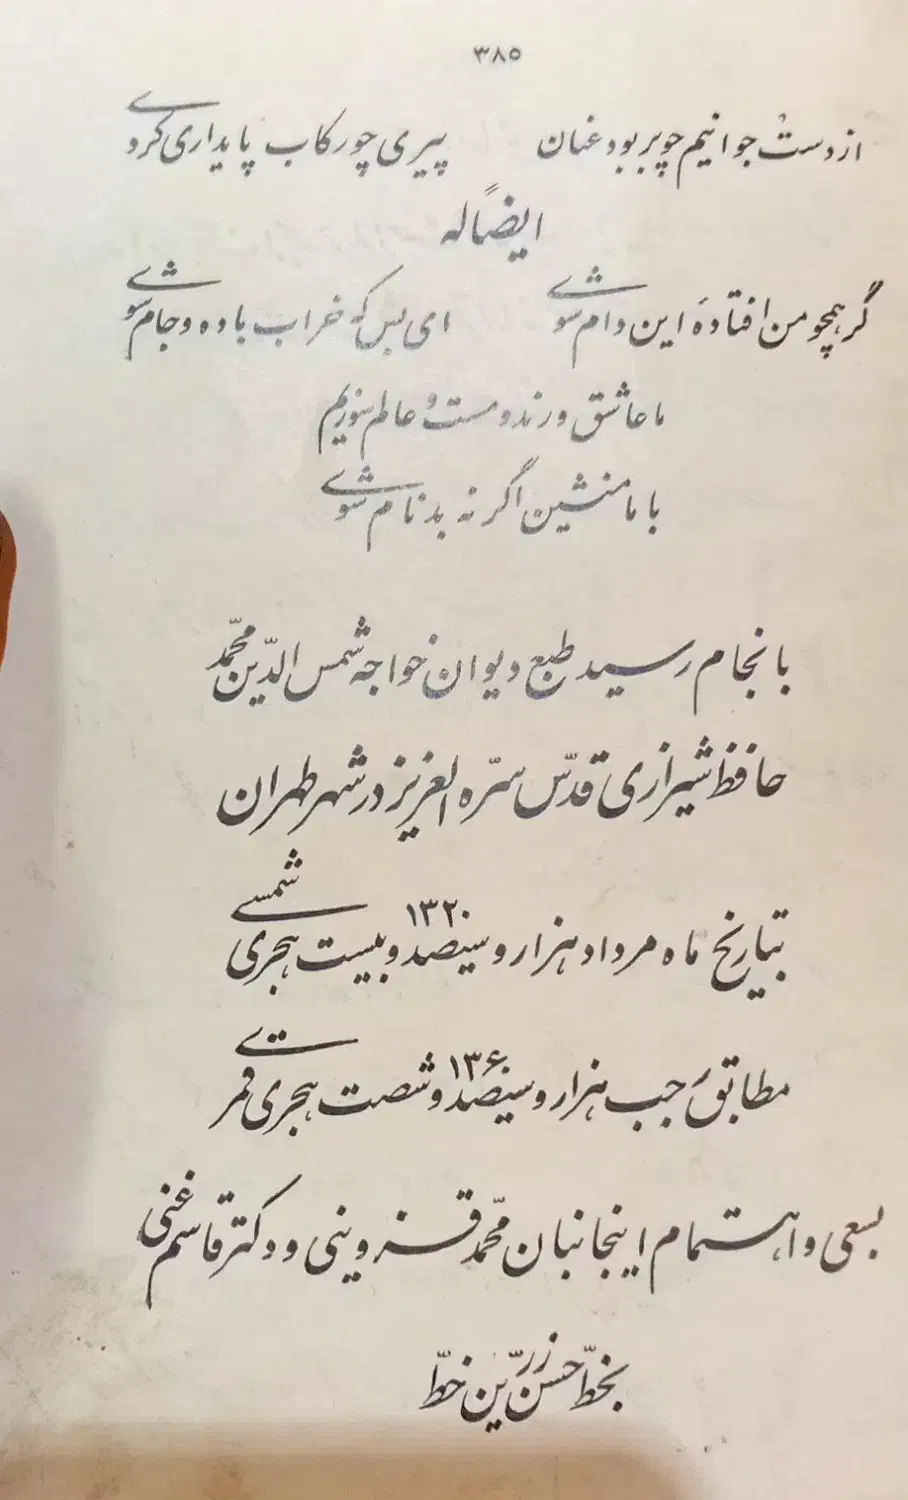 ۳۸۵
از دست جوانیم چو بربود عنان پیری چو رکاب پایداری کردی
ایضاً له
گر همچو من افتادهٔ این دام شوی ای بس که خراب باده و جام شوی
ما عاشق و رند و مست و عالم سوزیم
با ما منشین اگر نه بدنام شوی
بانجام رسید طبع دیوان خواجه شمس الدّین محمّد
حافظ شیرازی قدّس سرّه العزیز در شهر طهران
بتاریخ ماه مرداد هزار و سیصد و بیست ۱۳۲۰ هجری شمسی
مطابق رجب هزار و سیصد و شصت ۱۳۶۰ هجری قمری
بسعی و اهتمام اینجانبان محمّد قزوینی و دکتر قاسم غنی
بخطّ حسن زرّین خطّ